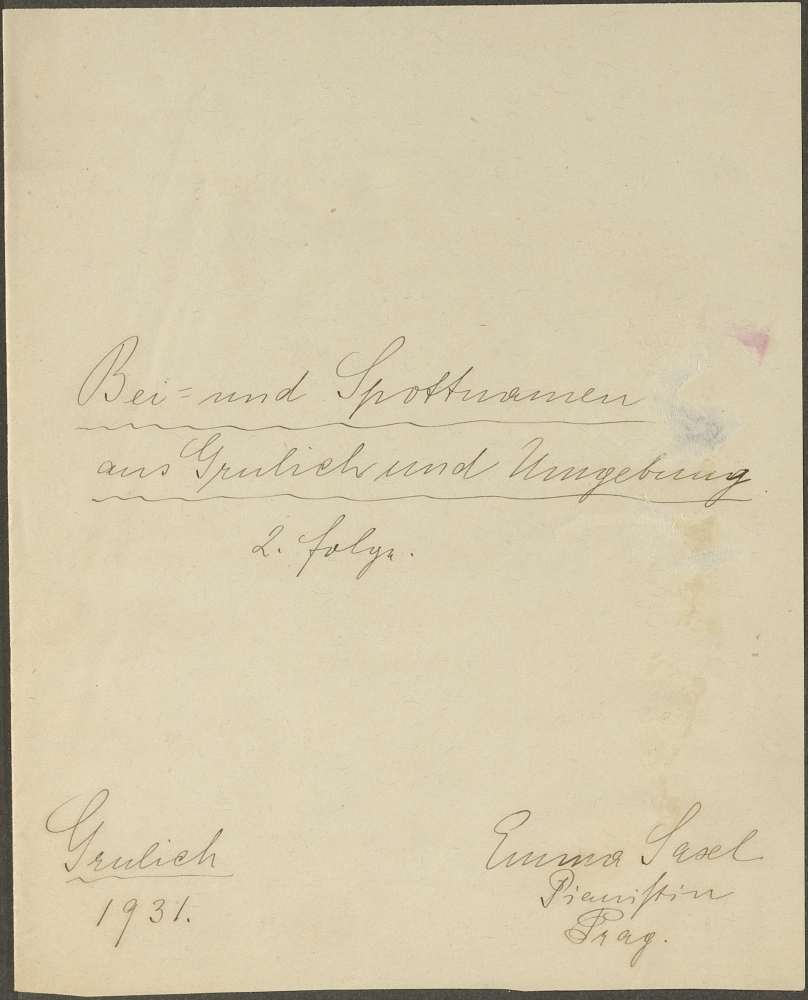 Bei= und Spottnamen
aus Grulich und Umgebung
2. Folge.
Grulich
1931.
Emma Saxel
Pianistin
Prag.